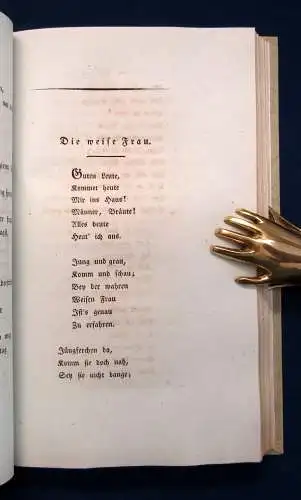 Die weise Frau.
Guten Leute,
Kommet heute
Mir ins Haus!
Männer, Bräute!
Alles heute
Heut' ich aus.
Jung und grau,
Komm und schau;
Bey der wahren
Weisen Frau
Ist's genau
Zu erfahren.
Jüngferchen da,
Komm sie doch nah,
Sey sie nicht bange;